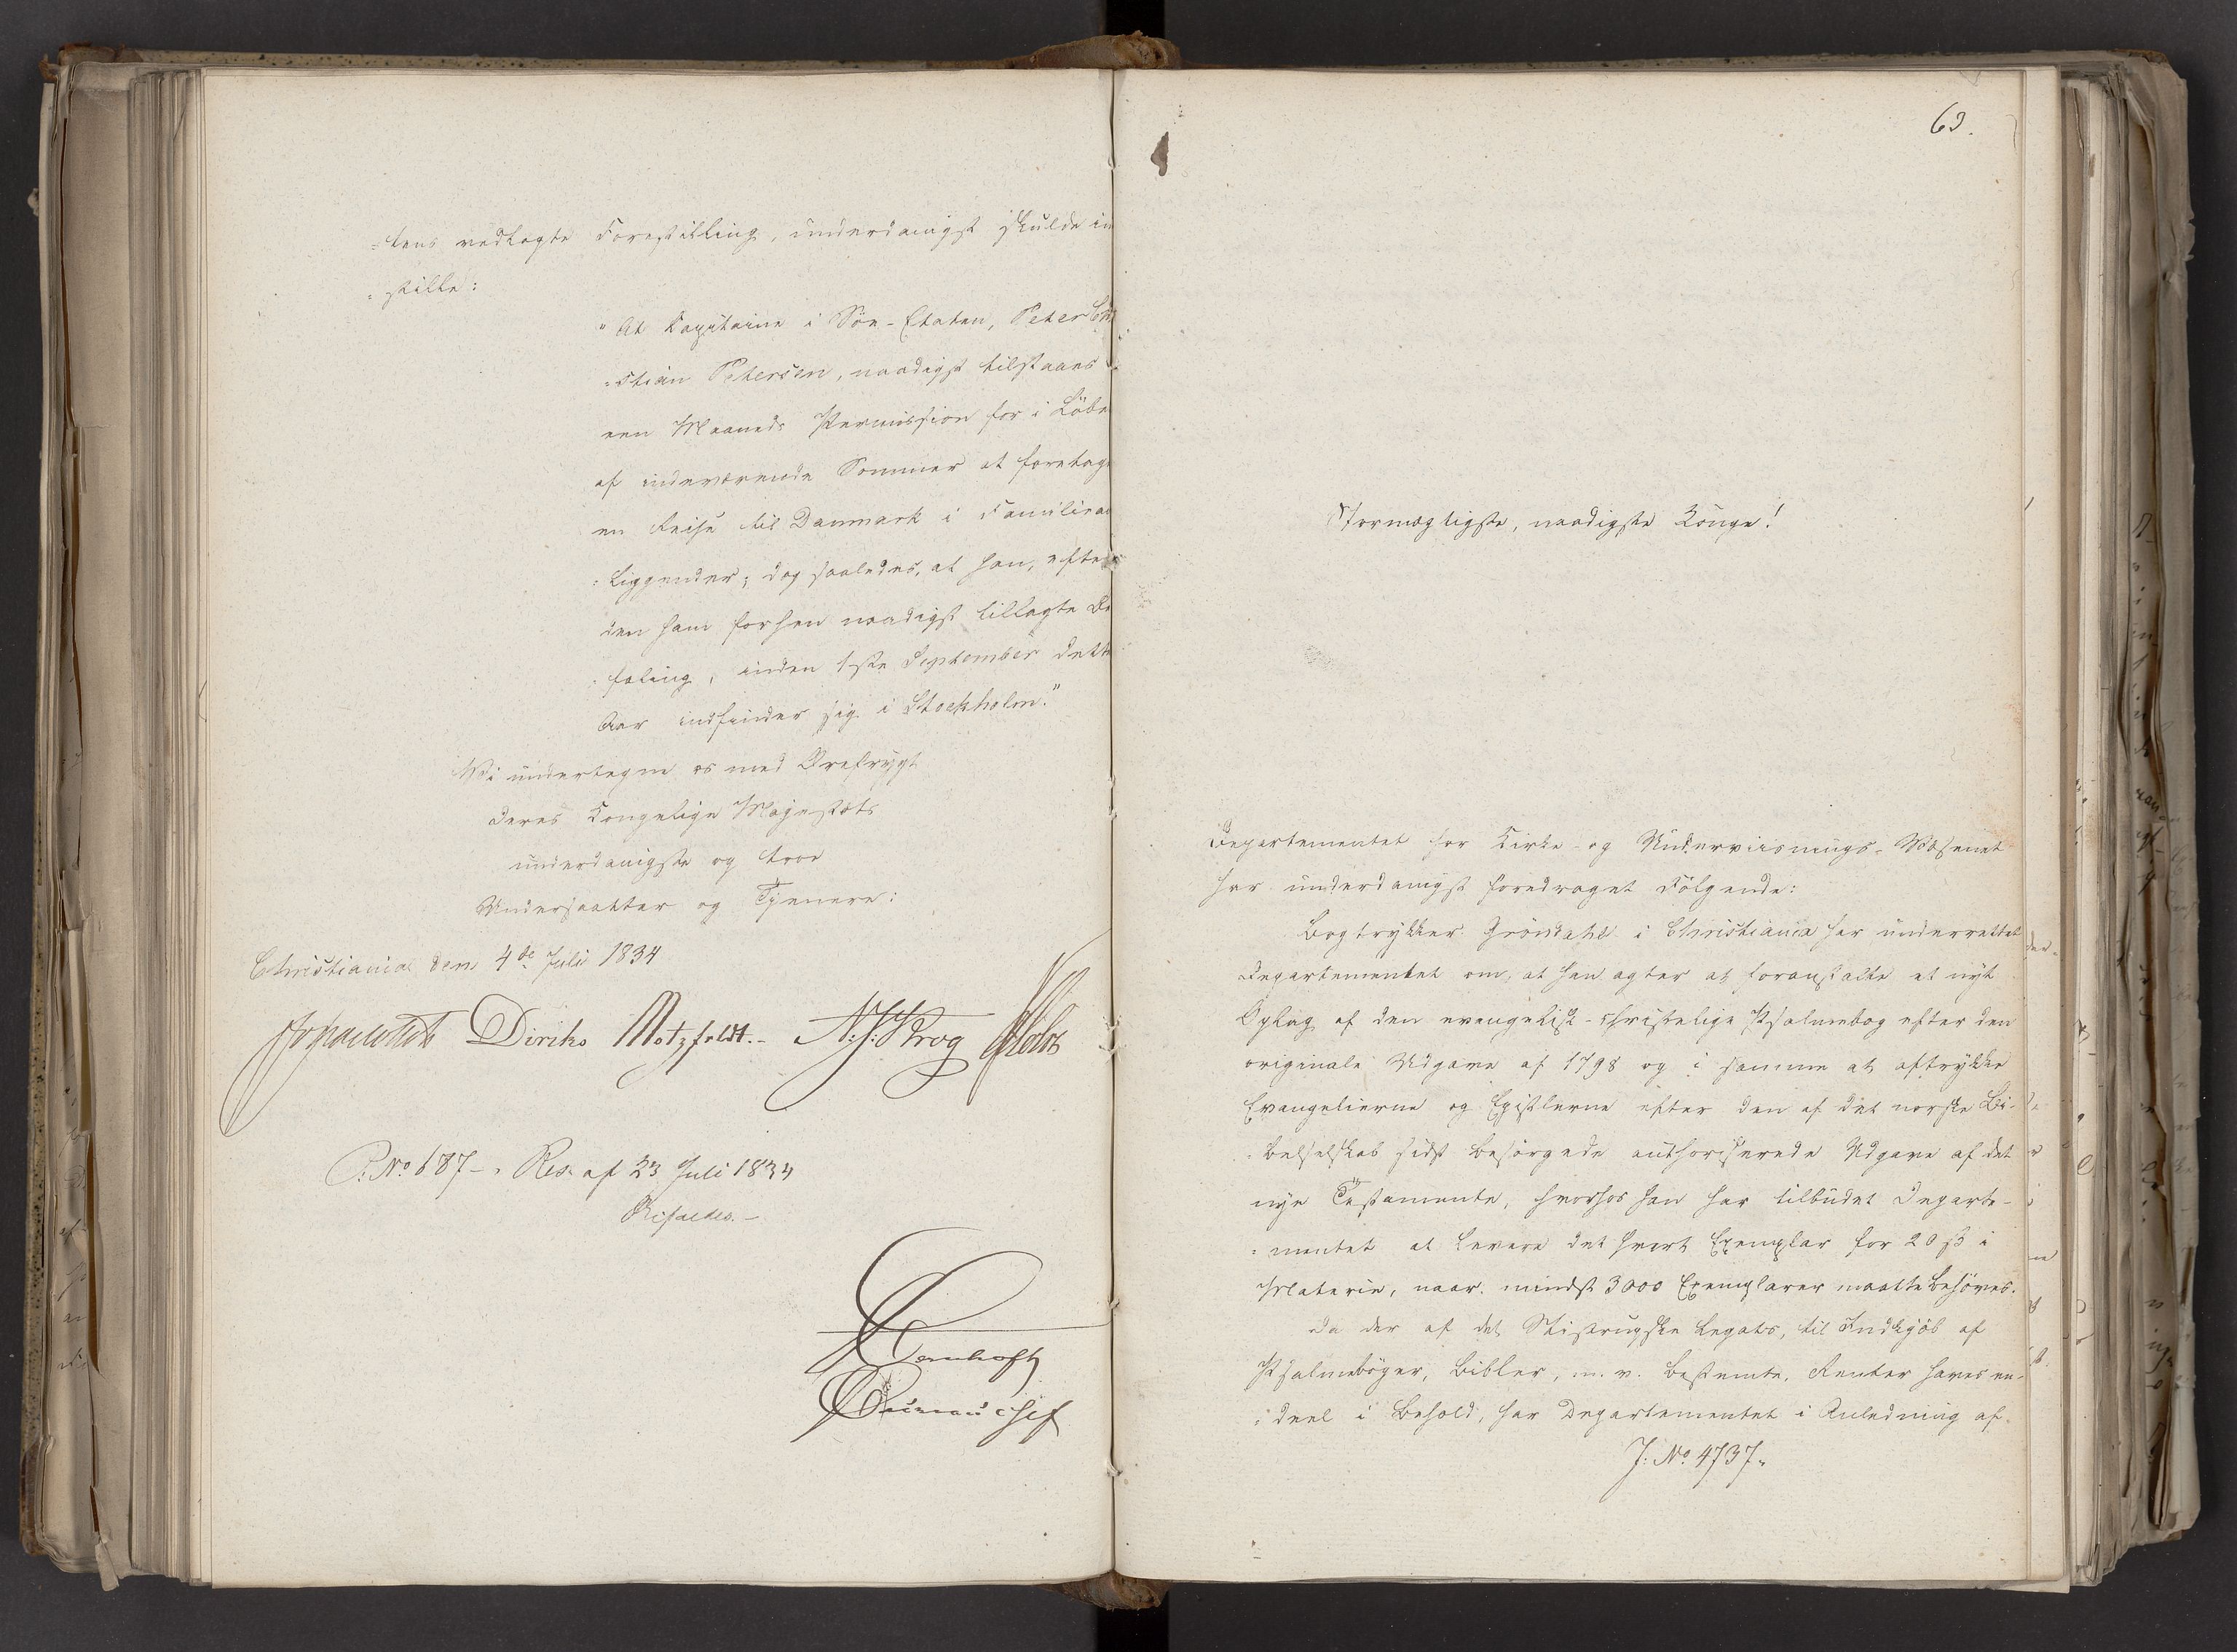 =tens vedlagte Forestilling, underdanigst skulde in
=stille:
"At Capitaine i Söe-Etaten, Peter Chri
=stian Petersen, naadigst tilstaaes
een Maaneds Permission for i Löbe
af indeværende Sommer at foretage
en Reise til Danmark i Familiean
=liggender; dog saaledes, at han, efter
den ham forhen naadigst tillagte Be
=faling, inden 1ste September dette
Aar indfinder sig i Stockholm."
Vi undertegne os med Ærefrygt
Deres Kongelige Majestæts
underdanigste og troe
Undersaatter og Tjenere:
Christiania den 4de Juli 1834
Diriks Motzfeldt. N. J. Krog Holst
P. No 687 - Res. af 23 Juli 1834
Bifaldes.-
63.
Stormægtigste, naadigste Konge!
Departementet for Kirke- og Underviisnings-Væsenet
har underdanigst foredraget Fölgende:
Bogtrykker Gröndahl i Christiania har underrettet
Departementet om, at han agter at foranstalte et nyt
Oplag af den evangelisk-christelige Psalmebog efter den
originale Udgave af 1798 og i samme at aftrykke
Evangelierne og Epistlerne efter den af det norske Bi-
=belselskab sidst besörgede authoriserede Udgave af det
nye Testamente, hvorhos han har tilbudet Departe-
=mentet at levere det hvert Exemplar for 20 ß i
Materie, naar mindst 3000 Exemplarer maatte behöves.
Da der af det Stistrupske Legats, til Indkjöb af
Psalmeböger, Bibler, m. v. bestemte, Renter haves en-
=deel i Behold, har Departementet i Anledning af
J. No 4737.